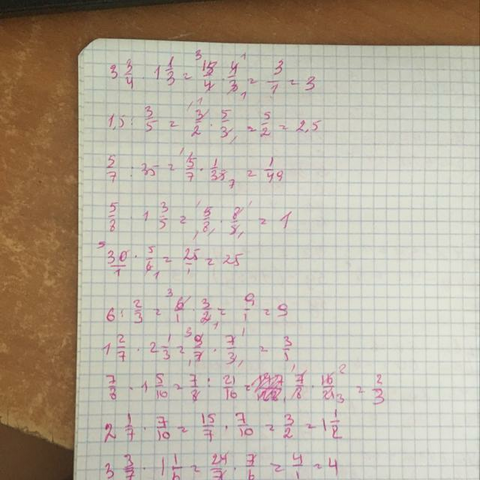 3 3/4 · 1 1/3 = 15/4 · 4/3 = 3/1 = 3
1,5 : 3/5 = 3/2 · 5/3 = 5/2 = 2,5
5/7 : 35 = 5/7 · 1/35 = 1/49
5/8 · 1 3/5 = 5/8 · 8/5 = 1
30/1 · 5/6 = 25/1 = 25
6 : 2/3 = 6/1 · 3/2 = 9/1 = 9
1 2/7 · 2 1/3 = 9/7 · 7/3 = 3/1
7/8 : 1 5/16 = 7/8 : 21/16 = 7/8 · 16/21 = 2/3
2 1/7 · 7/10 = 15/7 · 7/10 = 3/2 = 1 1/2
3 3/7 · 1 1/6 = 24/7 · 7/6 = 4/1 = 4